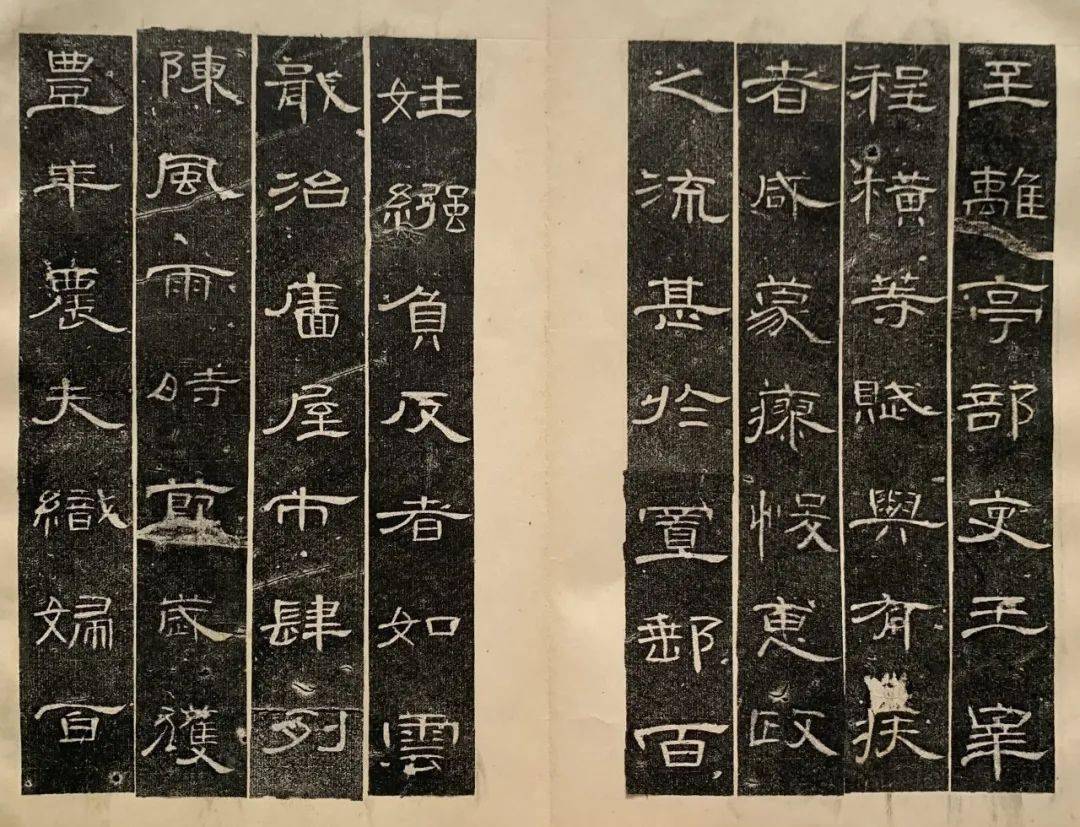 至離亭部吏王皋
程橫等賦與有疾
者咸蒙瘳悛惠政
之流甚於置郵百
姓繈負反者如雲
戢治廧屋市肆列
陳風雨時節歲獲
豊年農夫織婦百